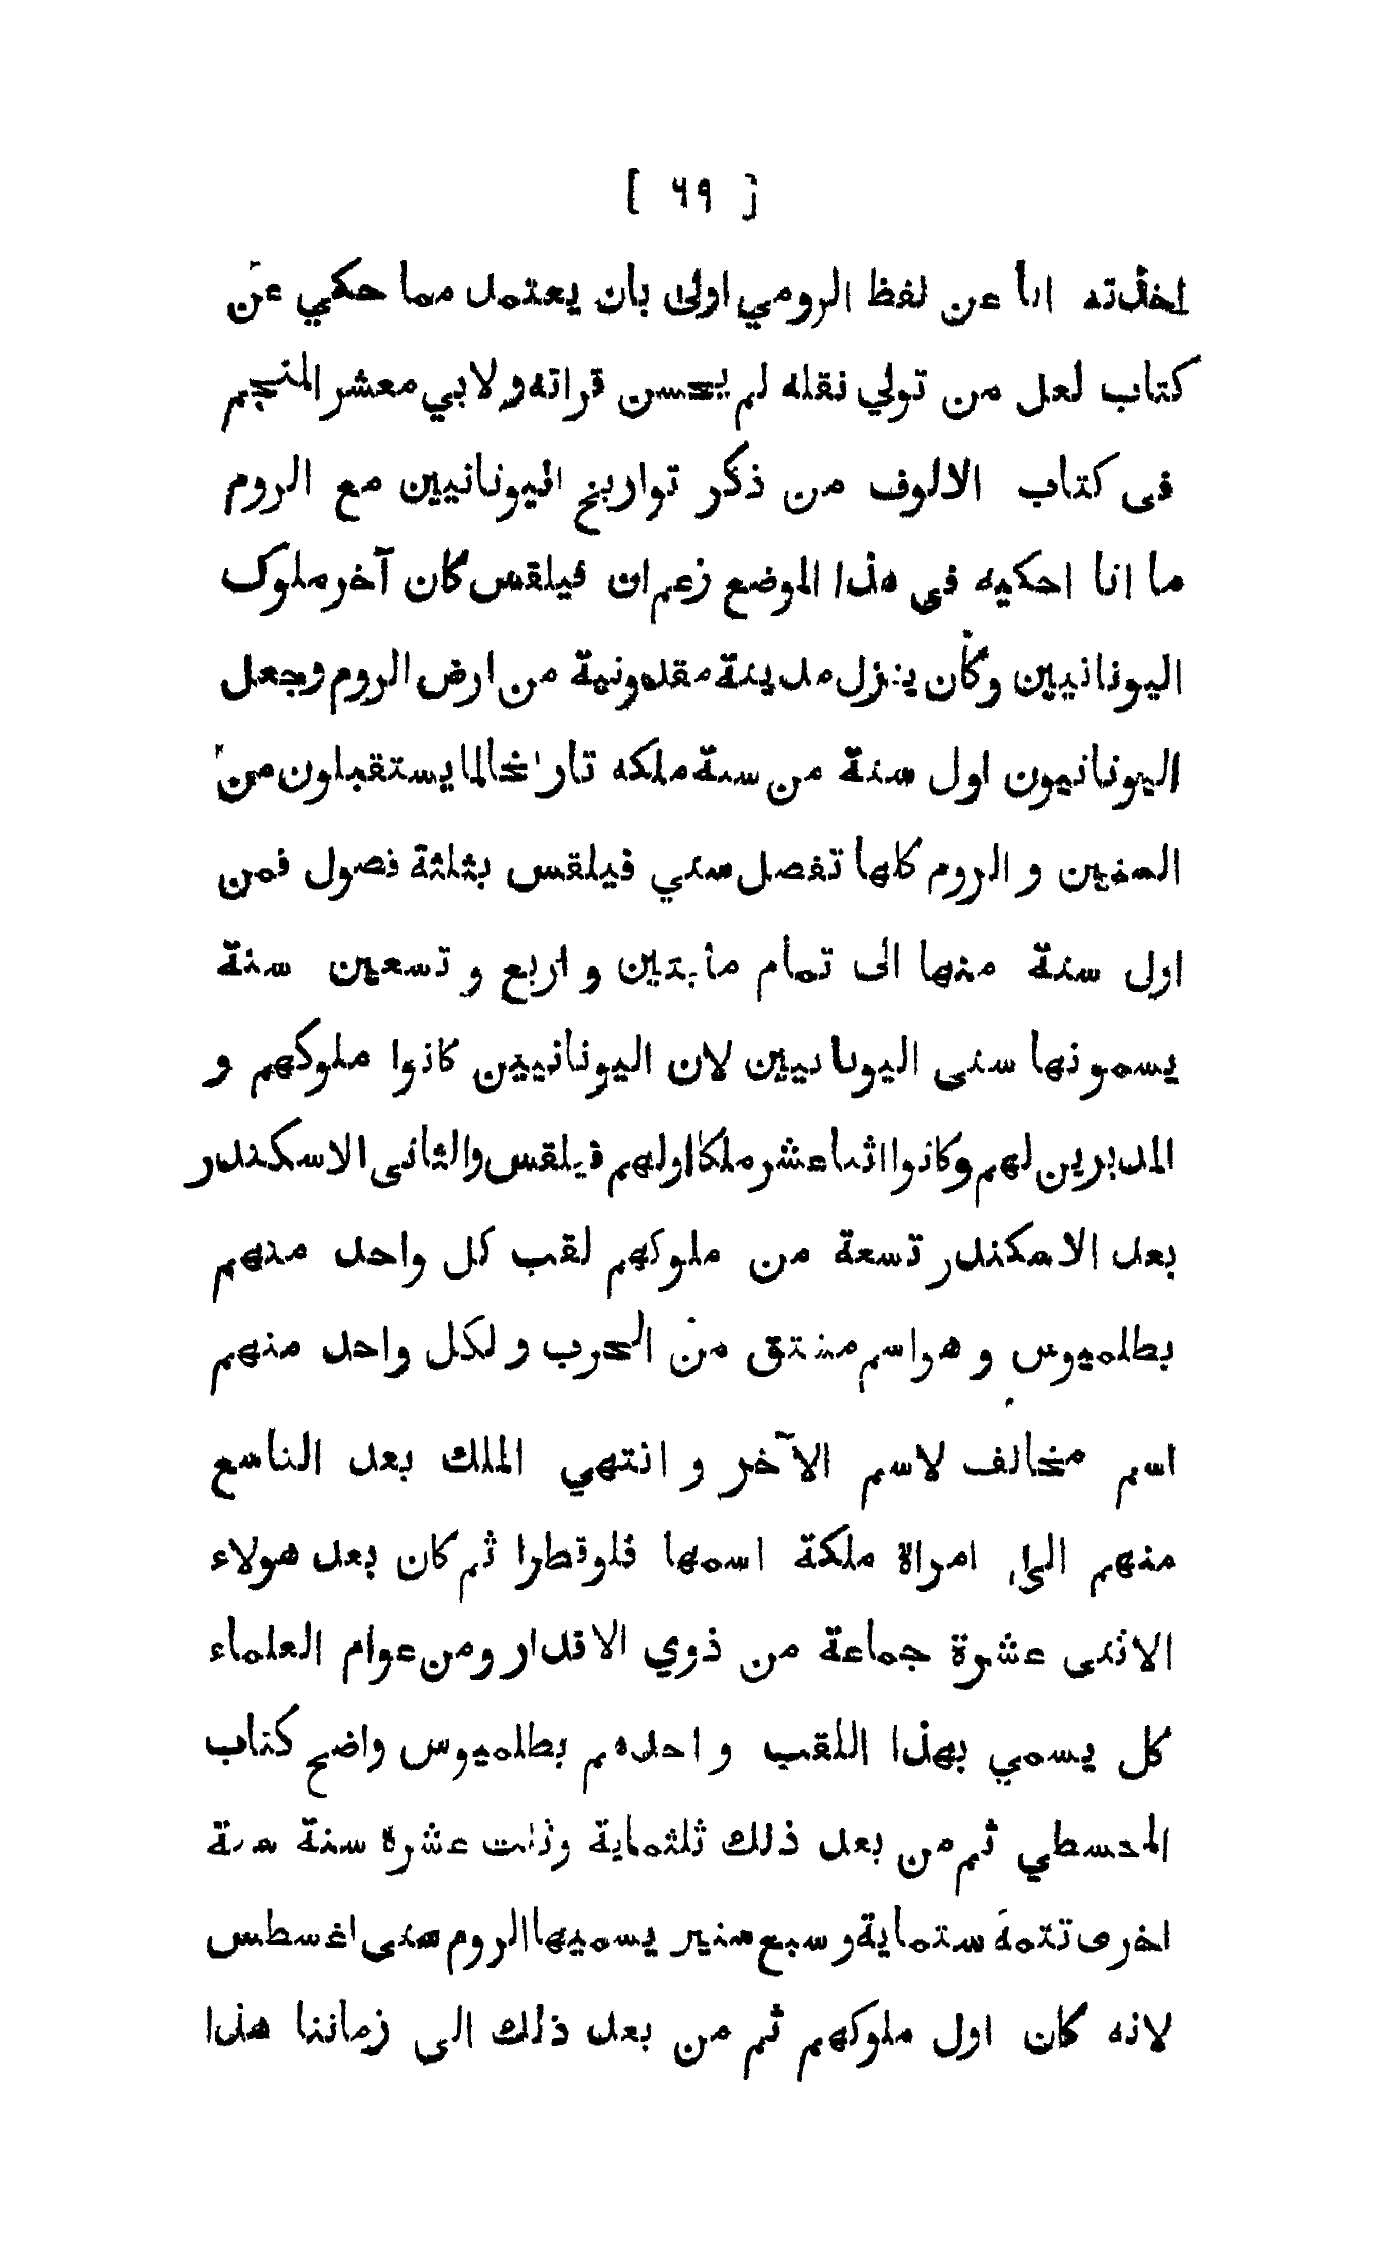 [ ٦٩ ]
اخذته انا عن لفظ الرومي اولى بان يعتمد مما حكي عن
كتاب لعل من تولي نقله لم يحسن قراته ولابي معشر المنجم
فى كتاب الالوف من ذكر تواريخ اليونانيين مع الروم
ما انا احكيه فى هذا الموضع زعم ان فيلقس كان آخر ملوك
اليونانيين وكان ينزل مدينة مقدونية من ارض الروم وجعل
اليونانيون اول سنة من سنة ملكه تاريخا لما يستقبلون من
السنين و الروم كلها تفصل سني فيلقس بثلثة فصول فمن
اول سنة منها الى تمام مأيتين و اربع و تسعين سنة
يسمونها سنى اليونانيين لان اليونانيين كانوا ملوكهم و
المدبرين لهم وكانوا اثنا عشر ملكا اولهم فيلقس والثانى الاسكندر
بعد الاسكندر تسعة من ملوكهم لقب كل واحد منهم
بطلميوس و هو اسم مشتق من الحرب و لكل واحد منهم
اسم مخالف لاسم الآخر و انتهي الملك بعد التاسع
منهم الى امراة ملكة اسمها قلوقطرا ثم كان بعد هولاء
الاثنى عشرة جماعة من ذوي الاقدار ومن عوام العلماء
كل يسمي بهذا اللقب و احدهم بطلميوس واضح كتاب
المجسطي ثم من بعد ذلك ثلثماية وثلث عشرة سنة سنة
اخرى تتمة ستماية و سبع سنين يسميها الروم سنى اغسطس
لانه كان اول ملوكهم ثم من بعد ذلك الى زماننا هذا